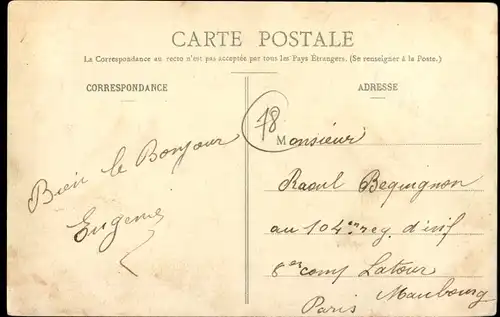 CARTE POSTALE
La Correspondance au recto n'est pas acceptée par tous les Pays Étrangers. (Se renseigner à la Poste.)
CORRESPONDANCE
ADRESSE
78
Bien le Bonjour
Eugene
Monsieur
Raoul Bequignon
au 104 eme reg. d'inf
8 em comp Latour
Maubourg
Paris